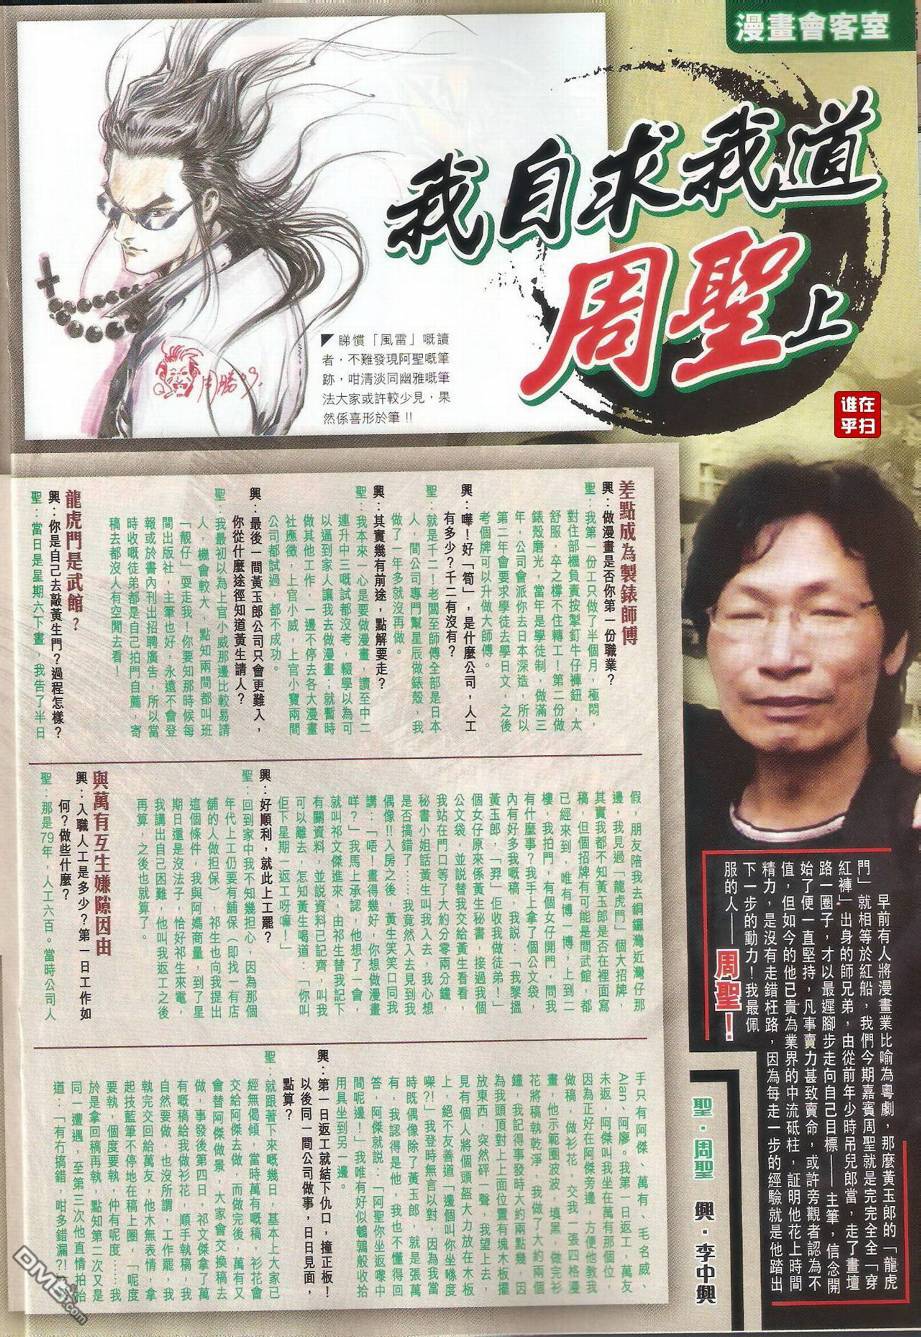 漫畫會客室
我自求我道
周聖上
◤睇慣「風雷」嘅讀
者，不難發現阿聖嘅筆
跡，咁清淡同幽雅嘅筆
法大家或許較少見，果
然係喜形於筆!!
谁在
乎扫
早前有人將漫畫業比喻為粵劇，那麼黃玉郎的「龍虎
門」就相等於紅船，我們今期嘉賓周聖就是完完全全「穿
紅褲」出身的師兄弟，由從前年少時吊兒郎當，走了畫壇
路一圈子，才以最遲腳步走向自己目標——主筆，信念開
始了便一直堅持，凡事賣力甚致賣命，或許旁觀者認為不
值，但如今的他已貴為業界的中流砥柱，証明他花上時間
精力，是沒有走錯枉路，因為每走一步的經驗就是他踏出
下一步的動力！我最佩
服的人——周聖！
聖．周聖　興．李中興
差點成為製錶師傅
興：做漫畫是否你第一份職業？
聖：我第一份工只做了半個月，極悶，
對住部機負責按掣釘牛仔褲鈕，太
舒服，卒之樣不住轉工！第二份做
錶殼磨光，當年是學徒制，做滿三
年，公司會派你去日本深造，所以
第二年會要求學徒去學日文，之後
考個牌可以升做大師傅。
興：嘩！好「筍」，是什麼公司，人工
有多少？千二有沒有？
聖：就是千二！老闆至師傅全部是日本
人，間公司專門幫星辰做錶殼，我
做了一年多就沒再做。
興：其實幾有前途，點解要走？
聖：我本來，心是要做漫畫，讀至中二
連升中三嘅試都沒考，輟學以為可
以逼到家人讓我去做漫畫，就暫時
做其他工作，一邊不停去各大漫畫
社應徵，上官小威，上官小寶兩間
公司都試過，都不成功。
興：最後一間黃玉郎公司只會更難入，
你從什麼途徑知道黃生請人？
聖：我最初以為上官小威那邊比較易請
人，機會較大，點知兩間都叫班
「靚仔」耍走我！你要知那時候每
間出版社，主筆也好，永遠不會登
報或於書內刊出招聘廣告，所以當
時收嘅徒弟都是自己拍門自薦，寄
稿去都沒人有空閒去看！
龍虎門是武館？
興：你是自己去敲黃生門？過程怎樣？
聖：當日是星期六下晝，我告了半日
假，朋友陪我去銅鑼近灣仔那
邊，我見過「龍虎門」個大招牌，
其實我都不知黃玉郎是否在裡面寫
稿，但個招牌有可能是間武館，都
已經來到，唯有博一博，上到二
樓，我拍門，有個女仔開門，問我
有什麼事？我手上拿了個公文袋，
內有好多我嘅稿，我話：「我黎搵
黃玉郎，「羿」佢收我做徒弟！」
個女仔原來係黃生秘書，接過我個
公文袋，並説替我交給黃生看看，
我站在門口等了大約分零兩分鐘，
秘書小姐話黃生叫我入去，我心想
是否搞錯了……我真的入去見到我
偶像!!入房之後，黃生笑笑口同我
講：「唔！畫得幾好，你想做漫畫
咩？」我馬上承認，他想了一會
就叫祁文傑進來，由祁生替我記下
有關資料，並説資料已記齊，叫我
可以離去，怎知黃生喝道：「你叫
佢下星期一返工呀嘛！」
興：好順利，就此上工罷？
聖：回到家中我不知幾担心，因為那個
年代上工仍要有舖保（即找一有店
舖的人做担保），祁生也向我提出
這個條件，我與阿媽商量，到了星
期日還是沒法子，恰好祁生來電，
我講出自己困難，他叫我返工之後
再算，之後也就算了。
與萬有互生嫌隙因由
興：入職人工是多少？第一日工作如
何？做些什麼？
聖：那是79年，人工六百。當時公司人
手只有阿傑、萬有、毛名威、
Alan、阿廖。我第一日返工，萬友
未返，阿傑叫我坐在萬有那個位，
因為正好在阿傑旁邊，方便他教我
做稿，做衫花，交我一張四格漫
畫，他示範圈波波，填黑，做完衫
花將稿執乾淨，我做了大約兩個
鐘，我記得事發時大約兩點幾，因
為我頭頂對上上面位置有塊木板擺
放東西，突然砰一聲，我望上去，
見有個人將個頭盔大力放在木板
上，絕不友善道：「邊個叫你坐喺度
㗎?!」我登時無言以對，因為我當
時既偶像除了黃玉郎，就是張萬
有，我認得是他，我也不懂得回
答，阿傑就説：「阿聖你坐返嚟中
間呢邊！」我唯有好似鵪鶉般收拾
用具坐到另一邊。
興：第一日返工就結下仇口，撞正板！
以後同一間公司做事，日日見面，
點算？
聖：就跟著下來嘅幾日，基本上大家已
經無傷傾，當時萬有嘅稿，衫花會
交給阿傑去做，而做完後，萬有又
會替阿傑做景，大家會交換稿去
做，事發後第四日，祁文傑拿了萬
有嘅稿給我做衫花，順手執稿，我
自然要去做，也沒所謂，工作罷，我
執完交回給萬友，他木無表情，拿
起技藍筆不停地在稿上圈，「呢度
要執，個度要執，仲有呢度……我
於是拿回稿再執，點知第二次又是
同一遭遇，至第三次他直情拍枱
道：「有冇搞錯，咁多錯漏?!」